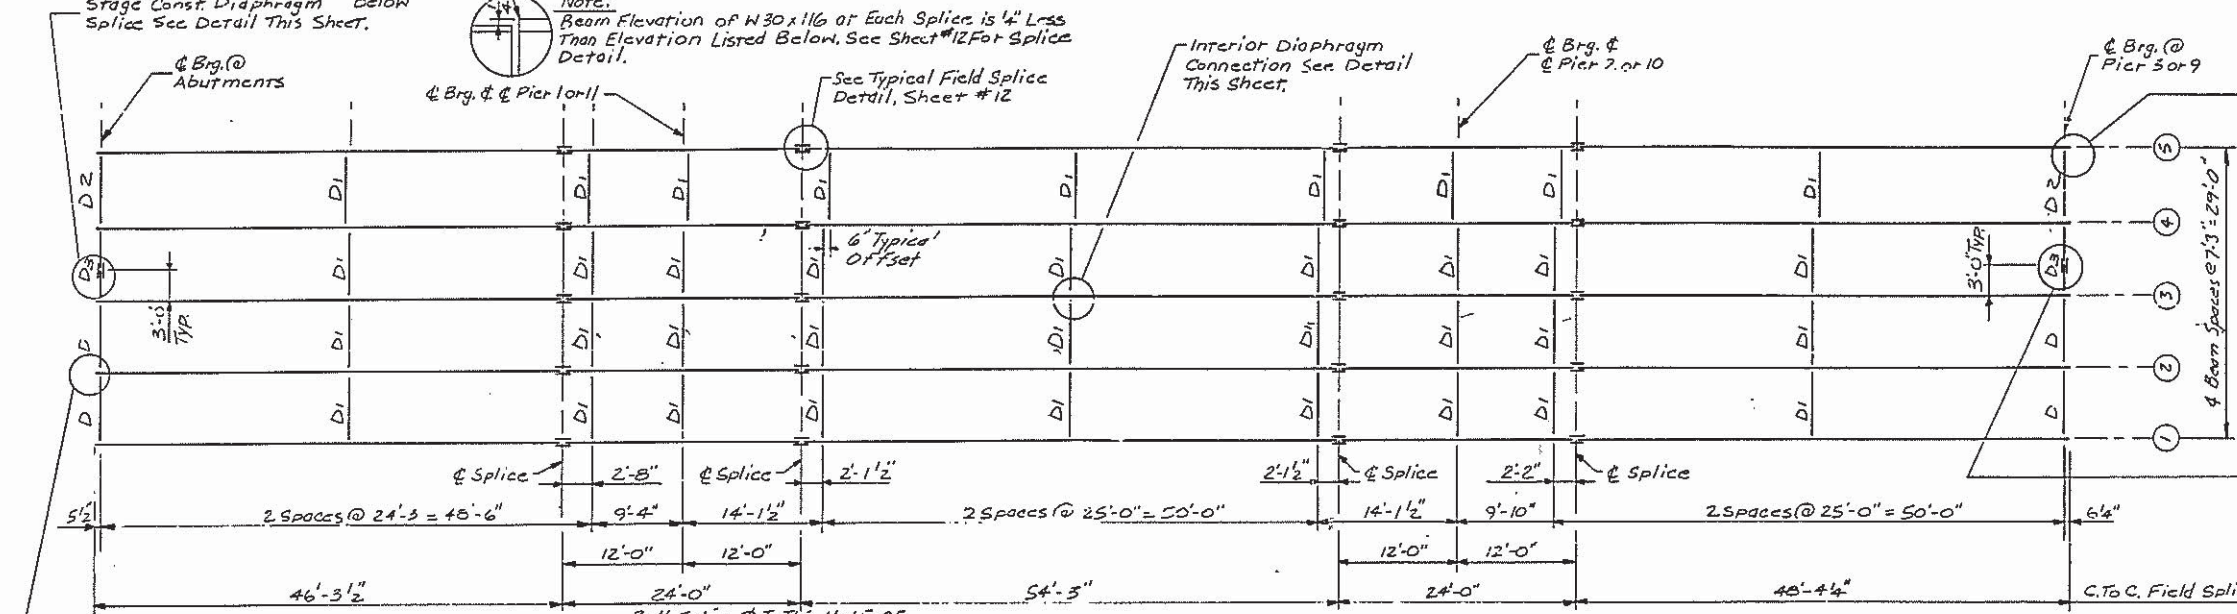 Stage Const. Diaphragm Below
Splice See Detail This Sheet.
Note:
Beam Elevation of W30x116 at Each Splice is ¼" Less
Than Elevation Listed Below. See Sheet #12 For Splice
Detail.
℄ Brg. @
Abutments
℄ Brg. ℄ ℄ Pier 1 or 11
See Typical Field Splice
Detail, Sheet #12
Interior Diaphragm
Connection See Detail
This Sheet.
℄ Brg. ℄
℄ Pier 2 or 10
℄ Brg. @
Pier 3 or 9
D2 D1 D1 D1 D1 D1 D1 D1 D1 D1 D2
5
4
6" Typical
Offset
D3 D1 D1 D1 D1 D1 D1 D1 D1 D1 D3
3'-0"
TYP.
3'-0" TYP.
3
D D1 D1 D1 D1 D1 D1 D1 D1 D1 D
2
D D1 D1 D1 D1 D1 D1 D1 D1 D1 D
1
4 Beam Spaces @ 7'-3" = 29'-0"
℄ Splice 2'-8" ℄ Splice 2'-1½" 2'-1½" ℄ Splice 2'-2" ℄ Splice
5½" 2 Spaces @ 24'-3 = 48'-6" 9'-4" 14'-1½" 2 Spaces @ 25'-0" = 50'-0" 14'-1½" 9'-10" 2 Spaces @ 25'-0" = 50'-0" 6¼"
12'-0" 12'-0" 12'-0" 12'-0"
46'-3½" 24'-0" 54'-3" 24'-0" 48'-4¼" C. To C. Field Spli